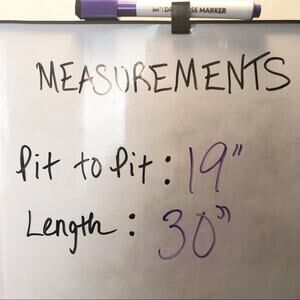 DRY ERASE MARKER
MEASUREMENTS
Pit to Pit: 19"
Length: 30"